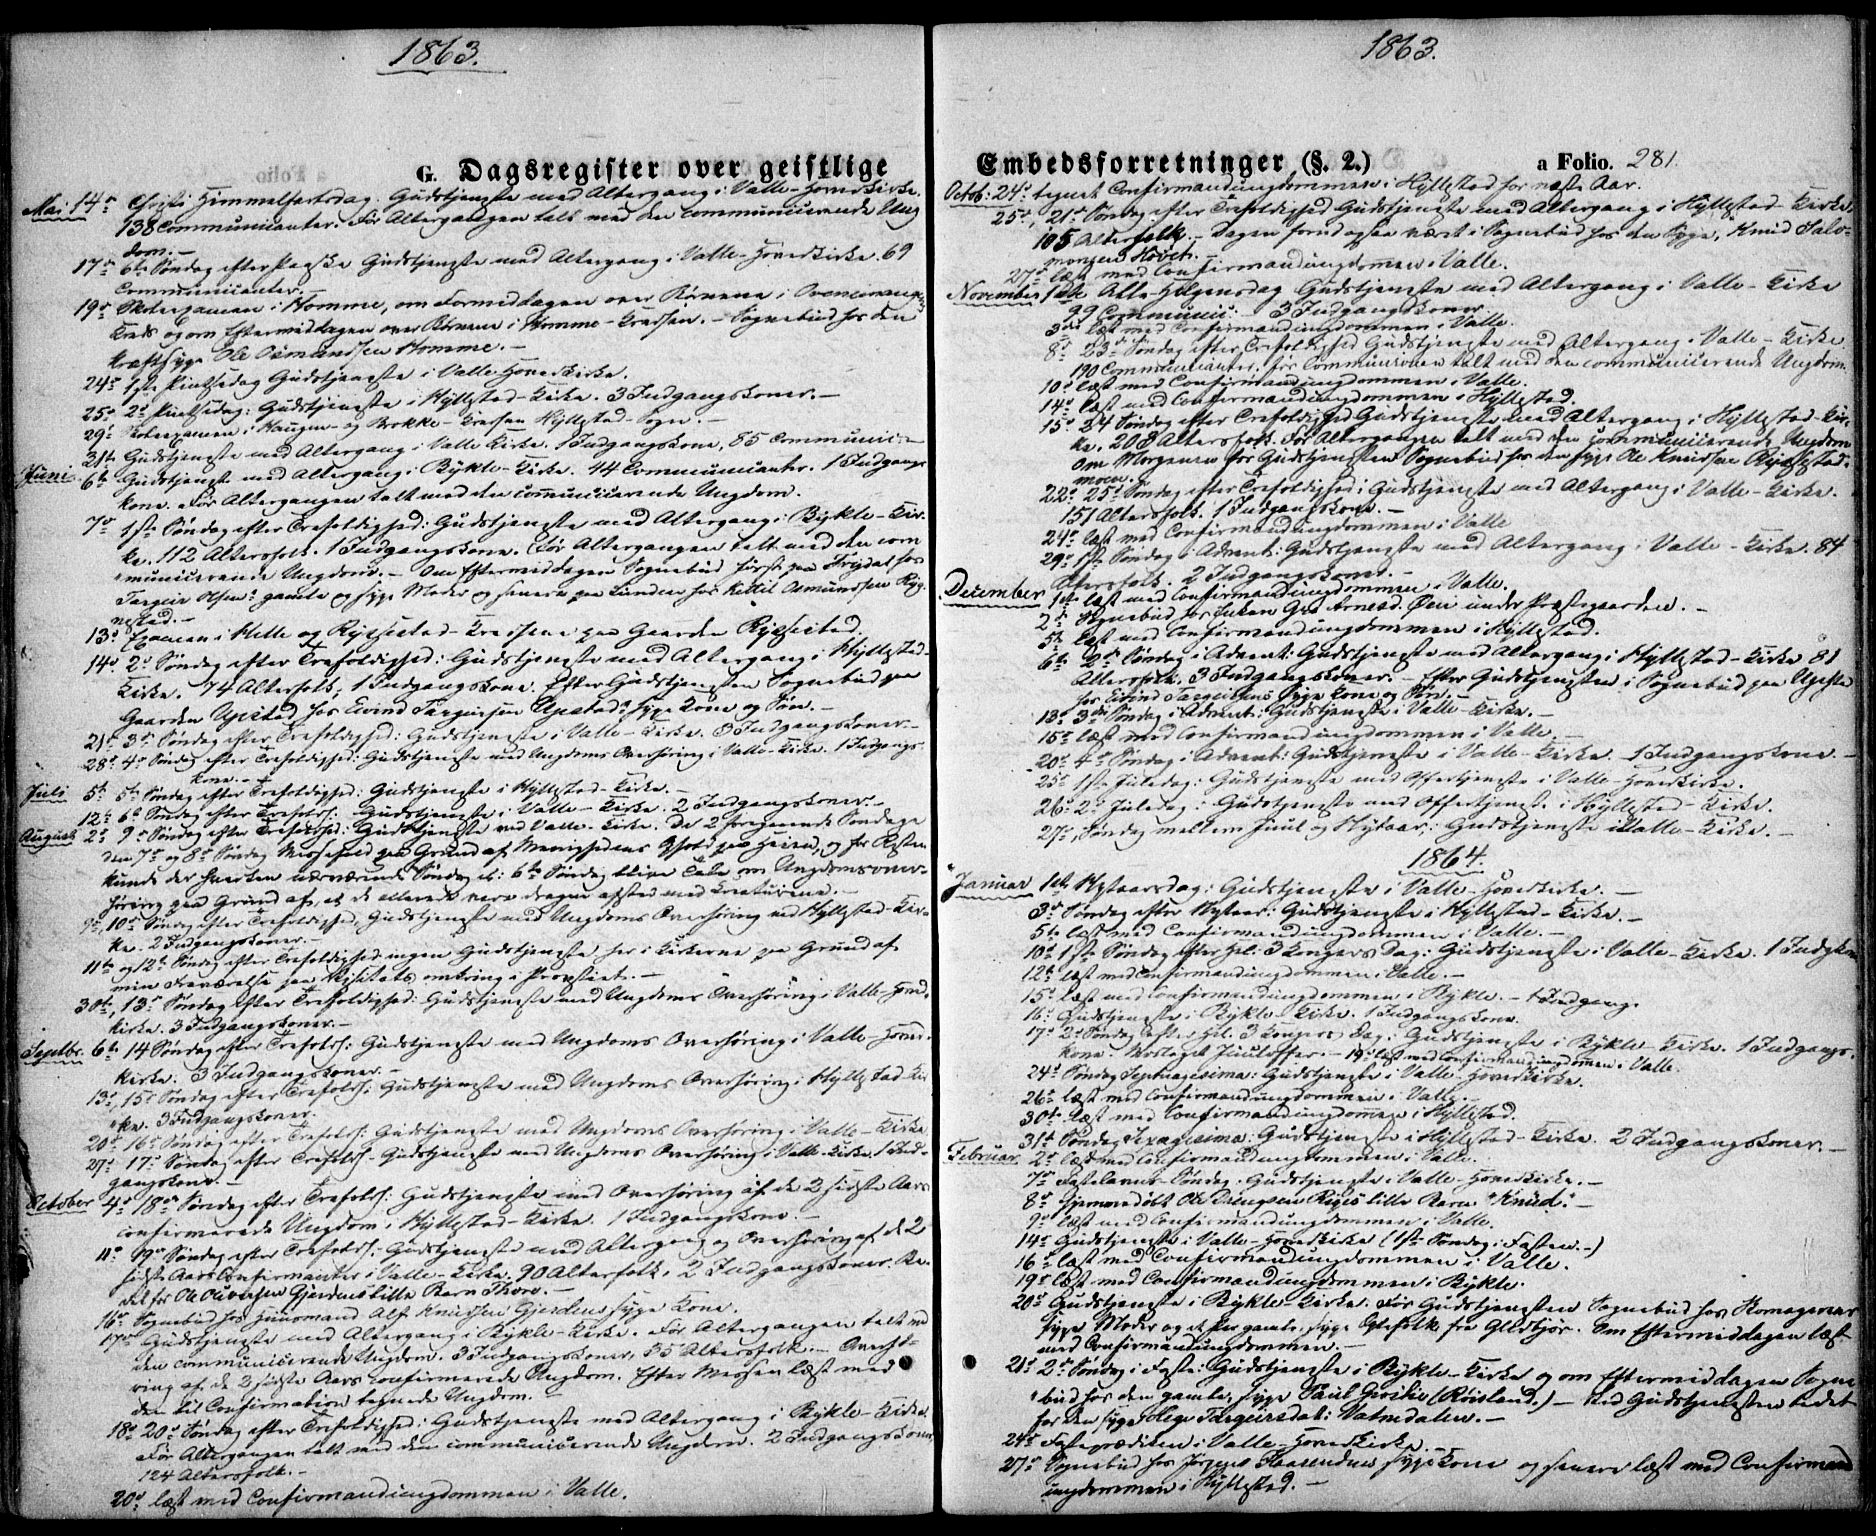 1863.
G. Dagsregister over geistlige
Mai 14de Christi Himmelfartsdag. Gudstjeneste med Altergang i Valle-Hovedkirke.
138 Communicanter. Før Altergangen talt med den communicerende Ung
dom.—
17de 6te Søndag efter Paaske Gudstjeneste med Altergang i Valle-Hovedkirke. 69
Communicanter.—
19de Skoleexamen i Homme, om Formiddagen over Børnene i
Kreds og om Eftermiddagen over Børnene i Homme-Kredsen.— Sognebud hos den
kræftsyge Ole Osmundsen Homme.—
24de 1ste Pintsedag Gudstjeneste i Valle Hovedkirke.
25de 2d Pintsedag: Gudstjeneste i Hyllestad-Kirke. 3 Indgangskoner.—
29de Skoleexamen i Haugen- og Brokke-Kredsen Hyllestad-Sogn.—
31te Gudstjeneste med Altergang i Valle Kirke. 1 Indgangskone, 85 Communic:—
Juni 6te Gudstjeneste med Altergang i Bykle-Kirke. 44 Communicanter. 1 Indgangs
kone. Før Altergangen talt med den communicerende Ungdom.
7de 1ste Søndag efter Trefoldighed: Gudstjeneste med Altergang i Bykle-Kir-
ke. 112 Altersfolk. 1 Indgangskone. Før Altergangen talt med den com
municerende Ungdom.— Om Eftermiddagen Sognebud først paa Trydal hos
Targeir Olsens gamle og syge Moder og senere paa Lunden hos Kittil Osmundsen Ryg
nestad.—
13de Examen i Helle og Rygnestad-Kredsene paa Gaarden Rygnestad.
14de 2d Søndag efter Trefoldighed: Gudstjeneste med Altergang i Hyllestad-
Kirke. 74 Alterfolk, 1 Indgangskone. Efter Gudstjenesten Sognebud paa
Gaarden Upstad hos Eivind Targeirsen Upstads syge Kone og Søn.—
21de 3de Søndag efter Trefoldighed: Gudstjeneste i Valle-Kirke. 3 Indgangskoner.—
28de 4de Søndag efter Trefoldighed: Gudstjeneste med Ungdoms Overhøring i Valle-Kirke. 1 Indgangs-
kone.—
Juli 5te 5te Søndag efter Trefoldighed: Gudstjeneste i Hyllestad-Kirke.—
12te 6te Søndag efter Trefolds: Gudstjeneste i Valle-Kirke. 2 Indgangskoner.—
August 2de 9de Søndag efter Trefoldighed: Gudstjeneste ved Valle-Kirke. De 2 foregaaende Søndage
den 7de og 8de Søndag Messefald paa Grund af Menighedens Ophold paa Heien, og for Resten
kunde der hverken nærværende Søndag el: 6te Søndag blive Tale om Ungdomsover-
høring paa Grund af, at de allerede vare dragne afsted med Kreaturene.—
9de, 10de Søndag efter Trefoldighed, Gudstjeneste med Ungdoms Overhøring ved Hyllestad-Kir-
ke. 2 Indgangskoner.—
11te og 12te Søndag efter Trefoldighed ingen Gudstjeneste her i Kirkerne paa Grund af
min Fraværelse paa Visitats omkring i Provstiet.—
30te, 13de Søndag efter Trefoldighed: Gudstjeneste med Ungdoms Overhøring i Valle-Hoved-
kirke. 3 Indgangskoner.—
Septbr. 6te 14 Søndag efter Trefolds: Gudstjeneste med Ungdoms Overhøring i Valle-Hoved-
kirke. 3 Indgangskoner.—
13de, 15de Søndag efter Trefolds: Gudstjeneste med Ungdoms Overhøring i Hyllestad Kir-
ke. 3 Indgangskoner.
20de 16de Søndag efter Trefolds: Gudstjeneste med Ungdoms Overhøring i Valle-Kirke
27de 17de Søndag efter Trefolds: Gudstjeneste med Ungdoms Overhøring i Valle-Kirke, 1 Ind-
gangskone.—
October 4de 18de Søndag efter Trefolds: Gudstjeneste med Overhøring af de 2 sidste Aars
confirmerede Ungdom i Hyllestad-Kirke. 1 Indgangskone.—
11te 19de Søndag efter Trefolds: Gudstjeneste med Altergang og Overhøring af de 2
sidste Aars Confirmanter i Valle-Kirke. 90 Alterfolk, 2 Indgangskoner.
Ole Oliversen Gjerdens lille Barn Thore.—
16de Sognebud hos Huusmand Alf Knudsen Gjerdens syge Kone.
17de Gudstjeneste med Altergang i Bykle-Kirke. Før Altergangen talt med
den communicerende Ungdom. 3 Indgangskoner, 55 Altersfolk.— Overhø-
ring af de 3 sidste Aars confirmerede Ungdom. Efter Messen læst med
den til Confirmation tegnede Ungdom.
18de 20de Søndag efter Trefoldighed: Gudstjeneste med Altergang i Bykle-Kirke.
Før Altergangen talt med den communicerende Ungdom. 2 Indgangskoner,
124 Altersfolk.—
20de læst med Confirmandungdommen i Valle.
1863.
Embedsforretninger (§. 2.) a Folio. 281.
Octob: 24de tegnet Confirmandungdommen i Hyllestad for næste Aar.
25de, 21de Søndag efter Trefoldighed Gudstjeneste med Altergang i Hyllestad Kirke,
105 Alterfolk.— Dagen forud ogsaa været i Sognebud hos den syge, Knud Salv-
monsen Hovet.
27de læst med Confirmandungdommen i Valle.
November 1ste Alle Helgensdag Gudstjeneste med Altergang i Valle-Kirke
99 Communic:— 3 Indgangskoner.
3die læst med Confirmandungdommen i Valle.
8de 23de Søndag efter Trefoldighed Gudstjeneste med Altergang i Valle-Kirke.
190 Communicanter, før Communionen talt med den communicerende Ungdom.
10de læst med Confirmandungdommen i Valle.
14de læst med Confirmandungdommen i Hyllestad.
15de 24 Søndag efter Trefoldighed Gudstjeneste med Altergang i Hyllestad-Kir-
ke. 203 Altersfolk. Før Altergangen talt med den communicerende Ungdom
om Morgenen før Gudstjenesten Sognebud hos den syge Ole Knudsen Rygnestad-
moen.
22de 25de Søndag efter Trefoldighed: Gudstjeneste med Altergang i Valle-Kirke.
151 Altersfolk. 1 Indgangskone.—
24de læst med Confirmandungdommen i Valle
29de 1ste Søndag i Advent: Gudstjeneste med Altergang i Valle-Kirke. 84
Altersfolk. 2 Indgangskoner.—
December 1ste læst med Confirmandungdommen i Valle.
2de Sognebud hos Enken Gro Arnesd. Øen under Præstegaarden.—
5te læst med Confirmandungdommen i Hyllestad.
6te 2de Søndag i Advent: Gudstjeneste med Altergang i Hyllestad-Kirke 81
Altersfolk. 3 Indgangskoner.— Efter Gudstjenesten i Sognebud paa Upsta
hos Eivind Targeirsens syge Kone og Søn.—
13de 3die Søndag i Advent: Gudstjeneste i Valle-Kirke.—
15de læst med Confirmandungdommen i Valle.—
20de 4de Søndag i Advent: Gudstjeneste i Valle-Kirke. 1 Indgangskone.—
25de 1ste Juledag: Gudstjeneste med Offertjeneste i Valle-Hovedkirke.—
26de 2d Juledag: Gudstjeneste med Offertjenest. i Hyllestad-Kirke.
27de, Søndag mellem Juul og Nytaar: Gudstjeneste i Valle-Kirke.—
1864.
Januar 1ste Nytaarsdag: Gudstjeneste i Valle-Hovedkirke.—
3de Søndag efter Nytaar: Gudstjeneste i Hyllestad-Kirke.—
5te læst med Confirmandungdommen i Valle.—
10de 1ste Søndag efter Hel. 3 Kongers Dag: Gudstjeneste i Valle-Kirke. 1 Indgkone
12te læst med Confirmandungdommen i Valle.—
15de læst med Confirmandungdommen i Bykle.— 1 Indgang.
16de Gudstjeneste i Bykle-Kirke. 1 Indgangskone.
17de 2de Søndag efter Hel. 3 Kongers Dag: Gudstjeneste i Bykle-Kirke. 1 Indgangs-
kone. Modtaget Juuloffer.— 19de læst med Confirmandungdommen i Valle.
24de Søndag Septuagesima: Gudstjeneste i Valle Hovedkirke.
26de læst med Confirmandungdommen i Valle.—
30te læst med Confirmandungdommen i Hyllestad.
31te Søndag Sexagesima: Gudstjeneste i Hyllestad-Kirke. 2 Indgangskoner.—
Februar 2de læst med Confirmandungdommen i Valle.
7de Fastelavns-Søndag: Gudstjeneste i Valle-Hovedkirke.—
8de Hjemmedøbt Ole Drengsen Rigs lille Barn "Knud".—
9de læst med Confirmandungdommen i Valle.
14de Gudstjeneste i Valle-Hovedkirke (1ste Søndag i Fasten.—)
16de læst med Confirmandungdommen i Valle.
19de læst med Confirmandungdommen i Bykle.
20de Gudstjeneste i Bykle-Kirke. Før Gudstjenesten Sognebud hos
syge Moder og et Par gamle, syge Ægtefolk fra. Om Eftermiddagen læst
med Confirmandungdommen.—
21de 2de Søndag i Faste: Gudstjeneste i Bykle-Kirke og om Eftermiddagen Sogne
bud hos den gamle, syge Paul (Røisland.)— Ved Gudstjenesten bedet
for den syge Hege Targeirsdat: Vatndalen.—
24de Fasteprædiken i Valle-Hovedkirke.—
27de Sognebud hos Jørgen syge Kone og senere læst med Confirmand
ungdommen i Hyllestad.—